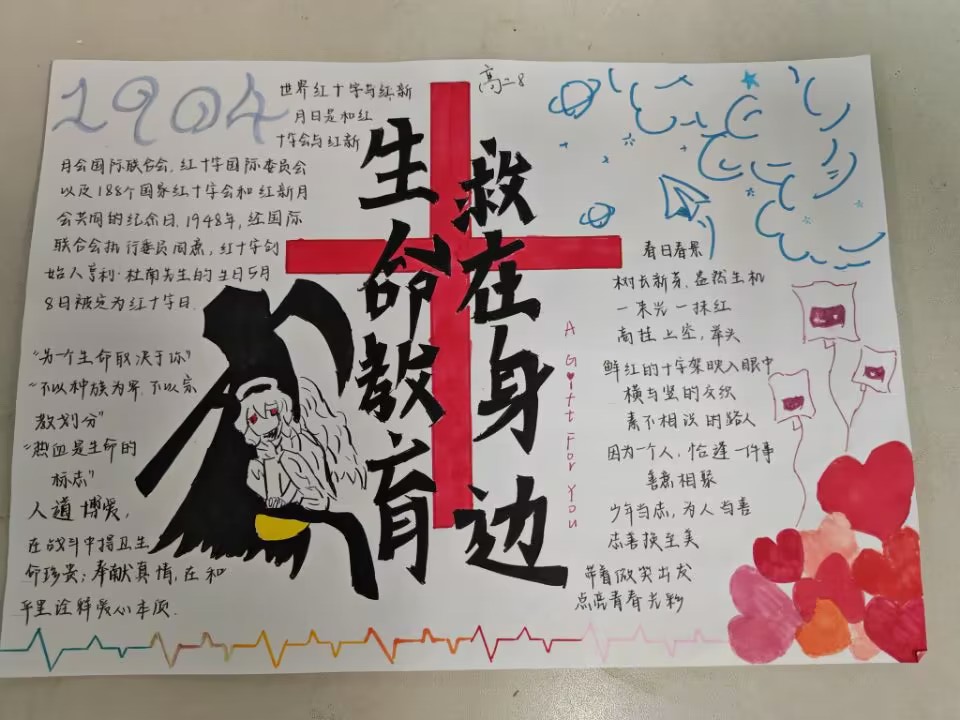 1904
高二8
世界红十字与红新
月日是和红
十字会与红新
月会国际联合会,红十字国际委员会
以及188个国家红十字会和红新月
会共同的纪念日,1948年,红国际
联合会执行委员同意,红十字创
始人亨利·杜南先生的生日5月
8日被定为红十字日.
生命教育
救在身边
"另个生命取决于你"
"不以种族为界,不以宗
教划分"
"热血是生命的
标志"
人道博爱,
在战斗中捍卫生
命珍贵;奉献真情,在和
平里诠释爱心本质.
A Gift For You
春日春景
树长新芽,盎然生机
一束光一抹红
高挂上空,举头
鲜红的十字架映入眼中
横与竖的交织
素不相识的路人
因为一个人,恰逢一件事
善意相聚
少年当志,为人与善
志善换至美
带着微笑出发
点亮青春光彩